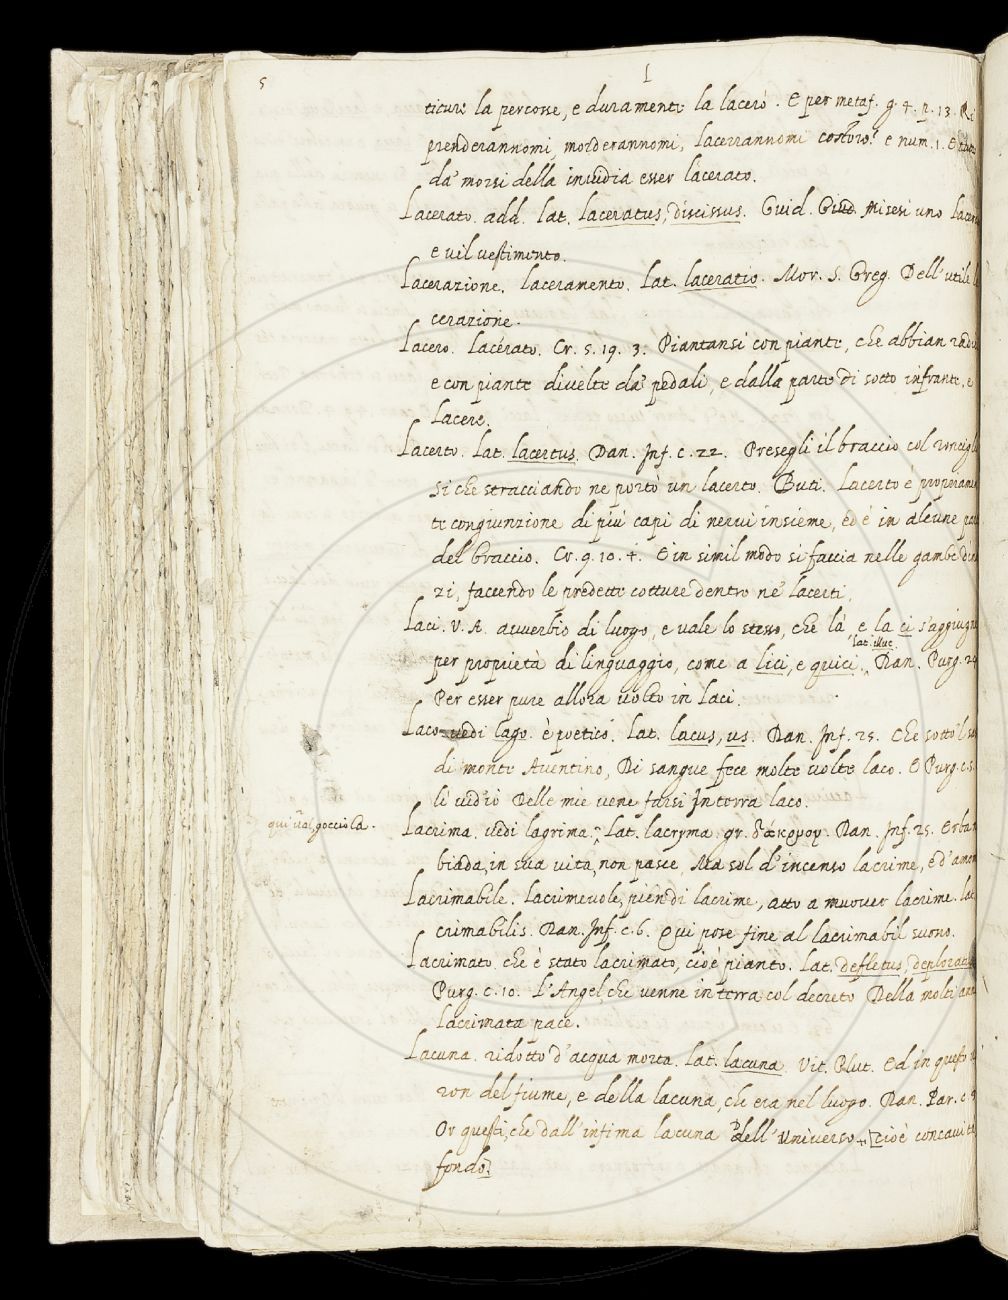 5
L
ticuro la percosse, e duramente la lacerò. E per metaf. g. 4. p. 13. Ri
prenderannomi, morderannomi, lacerrannomi costoro? e num. 1. E
da' morsi della inuidia esser lacerato.
Lacerato. add. lat. laceratus, discissus. Guid. Giud. Misesi uno lacera
e vil vestimento.
Lacerazione. Laceramento. Lat. laceratio. Mor. S. Greg. Dell'utile la
cerazione.
Lacero. Lacerato. Cr. 5. 19. 3. Piantansi con piante, che abbian radi
e con piante divelte da' pedali, e dalla parte di sotto infrante, e
Lacere.
Lacerto. Lat. lacertus. Dan. Inf. c. 22. Presegli il braccio col ronciglio
Si che stracciando ne portò un lacerto. Buti. Lacerto è propriamen
te congiunzione di più capi di nerui insieme, ed è in alcune par
del braccio. Cr. 9. 10. 4. E in simil modo si faccia nelle gambe din
zi, faccendo le predette cotture dentro ne' lacerti.
Laci. V. A. avverbio di luogo, e vale lo stesso, che là, e la ci s'aggiugne
Lat. illuc.
per proprietà di linguaggio, come a lici, e quici. Dan. Purg. 24
Per esser pure allora volto in laci.
Laco vedi lago. è poetico. Lat. lacus, us. Dan. Inf. 25. Che sotto 'l sa
di monte Aventino, Di sangue fece molte volte laco. E Purg. c. 5.
lì vid'io Delle mie vene farsi in terra laco.
qui val, gocciola.
Lacrima. vedi lagrima. Lat. lacryma. gr. δάκρυον. Dan. Inf. 25. Erba, nè
biada, in sua vita, non pasce, Ma sol d'incenso lacrime, e d'amom
Lacrimabile. Lacrimevole, pien di lacrime, atto a muover lacrime. lat.
crimabilis. Dan. Inf. c. 6. Qui pose fine al lacrimabil suono.
Lacrimato. che è stato lacrimato, cioè pianto. Lat. defletus, deploratus
Purg. c. 10. L'Angel che venne in terra col decreto Della molti'ann
Lacrimata pace.
Lacuna. ridotto d'acqua morta. Lat. lacuna. Vit. Plut. Ed in questo
ron del fiume, e della lacuna, che era nel luogo. Dan. Par. c.
Or questi, che dall'infima lacuna Dell'universo + [cioè concavità
fondo]